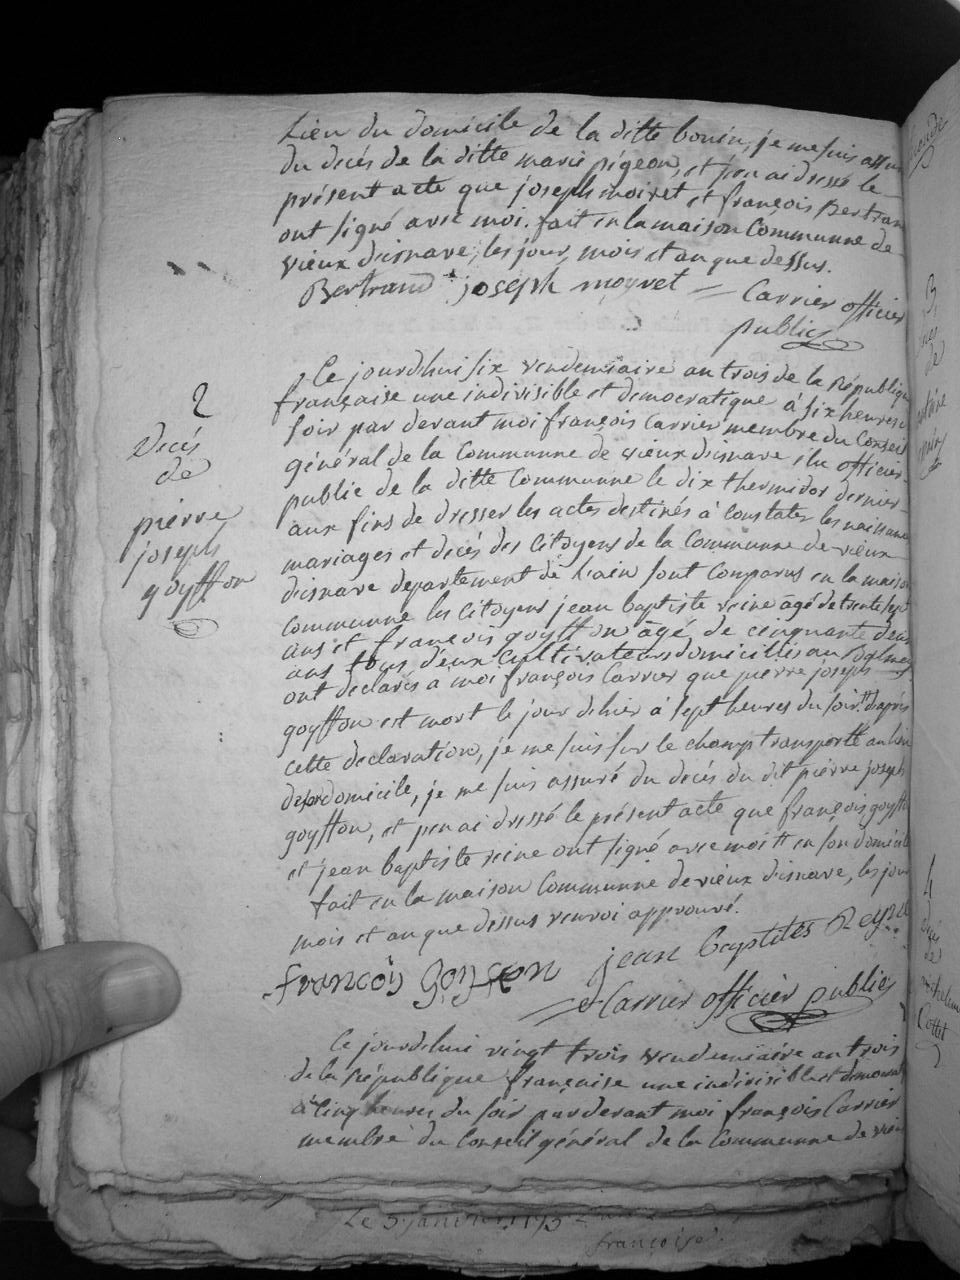 Lieu du domicile de la ditte bouin, je me suis assuré
du decés de la ditte marie pigeon, et j'en ai dressé le
présent acte que joseph moiret et françois Bertrand
ont signé avec moi. fait en la maison Communne de
vieux disnave, les jour, mois et an que dessus.
Bertrand joseph moyret Carrier officier
public
2
Decés
de
pierre
joseph
goyffon
Ce jourd'hui six vendemiaire an trois de la République
française une indivisible et democratique à six heures du
soir par devant moi françois Carrier membre du Conseil
général de la Communne de vieux disnave élu officier
public de la ditte Communne le dix thermidor dernier
aux fins de dresser les actes destinés à Constater les naissances
mariages et decés des Citoyens de la Communne de vieux
disnave departement de l'ain sont Comparus en la maison
Communne les Citoyens jean baptiste reine âgé de trente sept
ans et françois goyffon âgé de cinquante deux
ans tous deux Cultivateurs domiciliés au Balmey
ont declarés à moi françois Carrier que pierre joseph
goyffon est mort le jour d'hier à sept heures du soir. # d'après
cette declaration, je me suis sur le champ transporté au lieu
domicile, je me suis assuré du decés du dit pierre joseph
goyffon, et j'en ai dressé le présent acte que françois goyffon
et jean baptiste reine ont signé avec moi # en son domicile
fait en la maison Communne de vieux disnave, les jour
mois et an que dessus renvoi approuvé.
françois Goyffon jean baptistes Reyne
Carrier officier public
Ce jourd'hui vingt trois vendemiaire an trois
de la République française une indivisible et democrat
à cinq heures du soir par devant moi françois Carrier
membre du Conseil général de la Communne de vieux
Le 3 janvier
françoise
3
de
4
de
Cottet